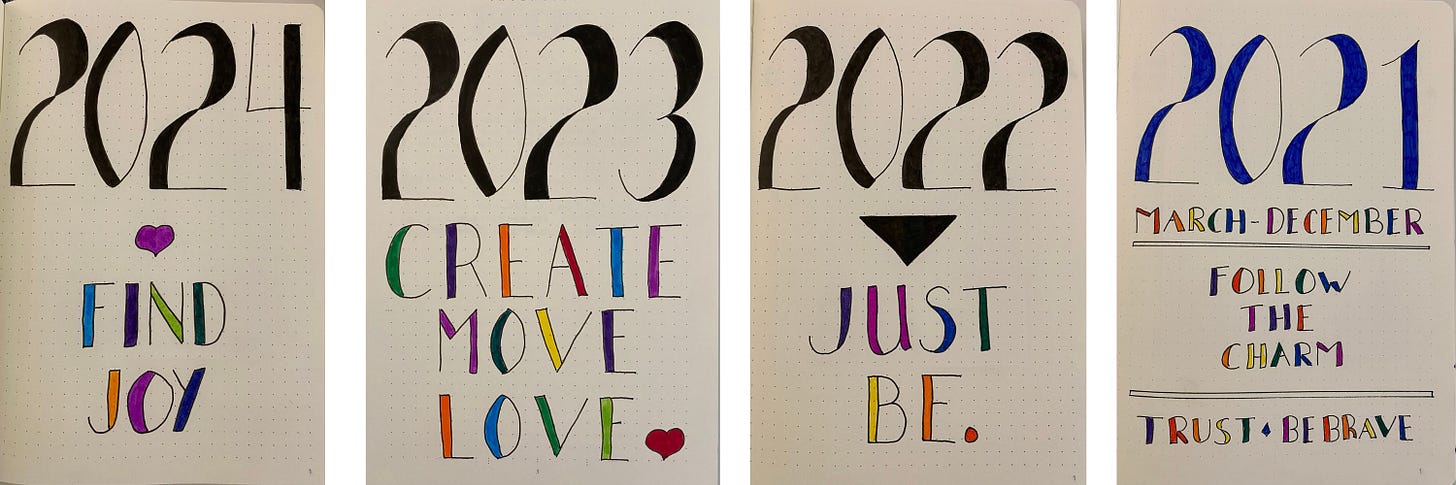 2024
FIND
JOY
2023
CREATE
MOVE
LOVE
2022
JUST
BE.
2021
MARCH-DECEMBER
FOLLOW
THE
CHARM
TRUST • BE BRAVE